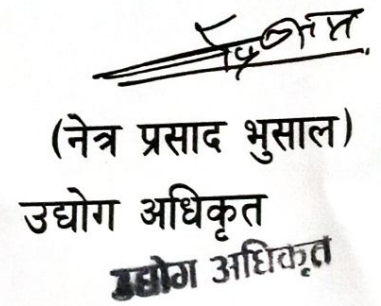 (नेत्र प्रसाद भुसाल)
उद्योग अधिकृत
उद्योग अधिकृत